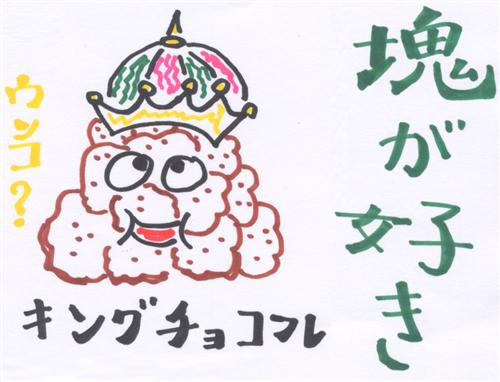 塊が好き
ウンコ?
キングチョコフレ